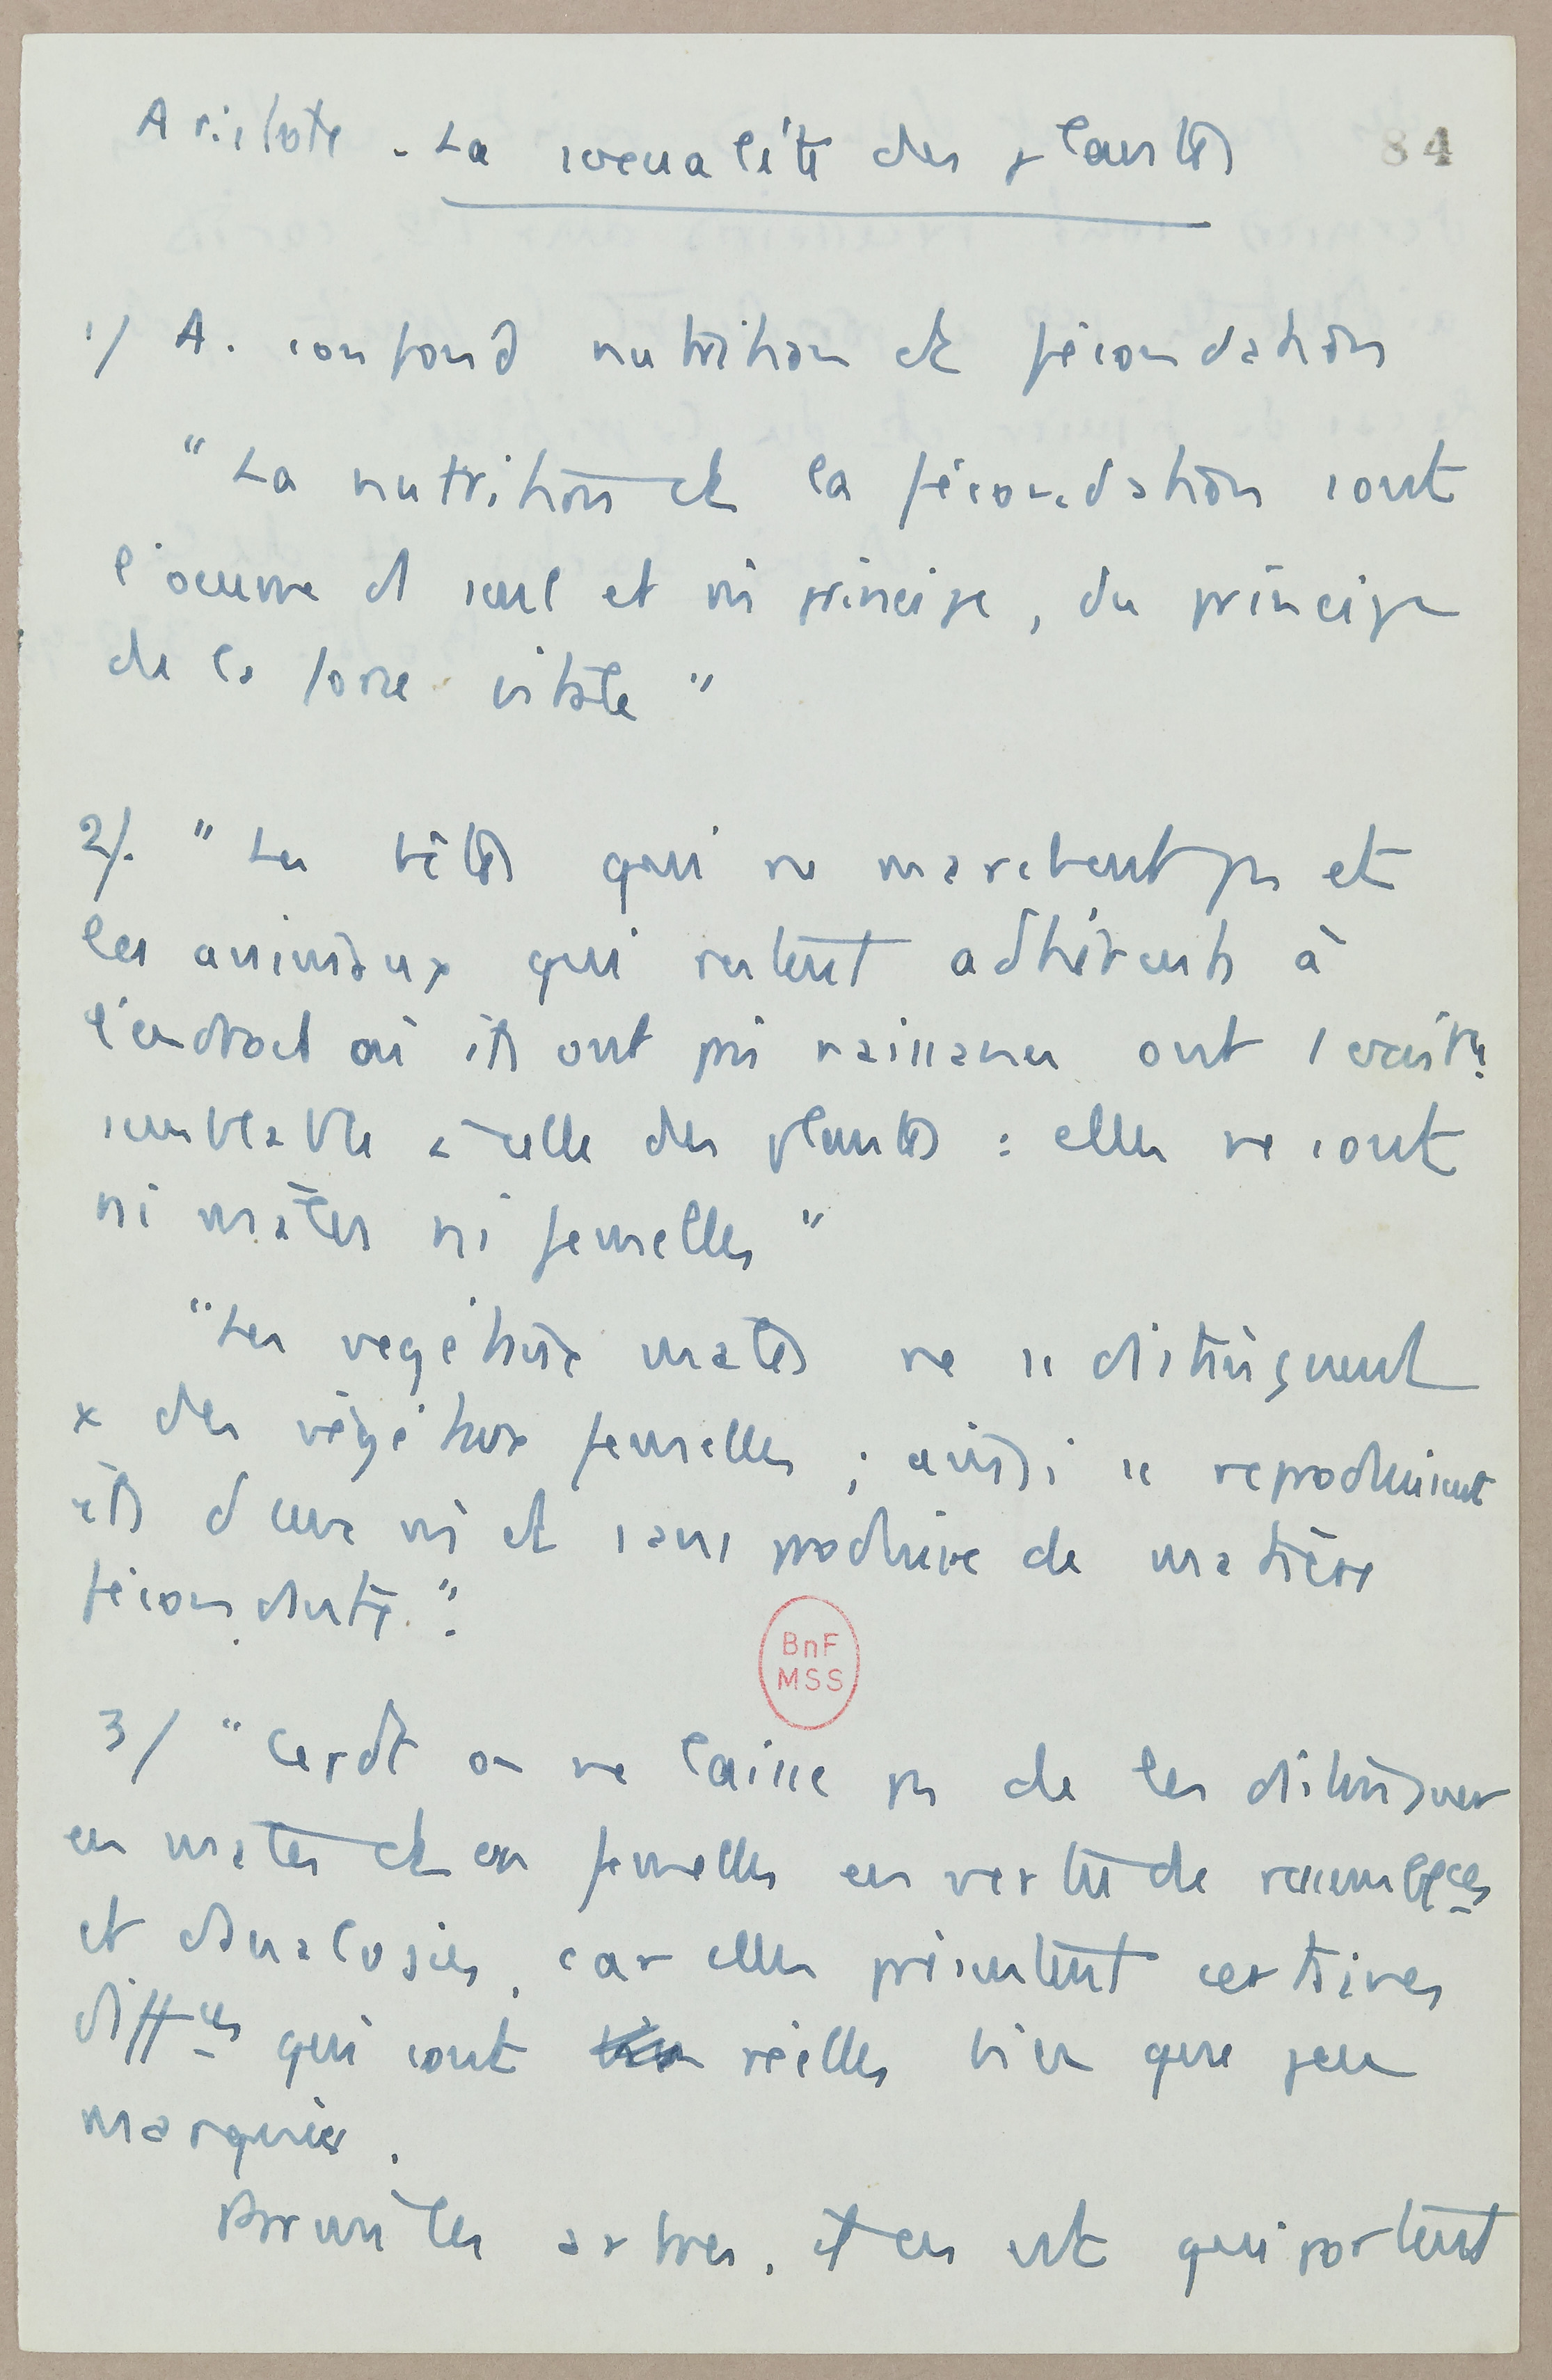 Aristote . La sexualité des plantes
84
1/ A. confond nutrition et fécondation
" La nutrition et la fécondation sont
l'oeuvre d seul et m̂ principe, du principe
de la force vitale "
2/. " Les bêtes qui ne marchent pas et
les animaux qui restent adhérents à
l'endroit où ils ont pris naissance ont 1 existce
semblable à celle des plantes : elles ne sont
ni mâles ni femelles "
" Les végétaux mâles ne se distinguent
x des végétaux femelles ; aussi se reproduisent
ils d'eux m̂ et sans produire de matière
fécondante ".
BnF
MSS
3/ " Cepdt on ne laisse pas de les distinguer
en mâles et en femelles en vertu de ressemblces
et d'analogies, car elles présentent certaines
diffces qui sont réelles bien que peu
marquées.
Parmi les arbres, il en est qui portent